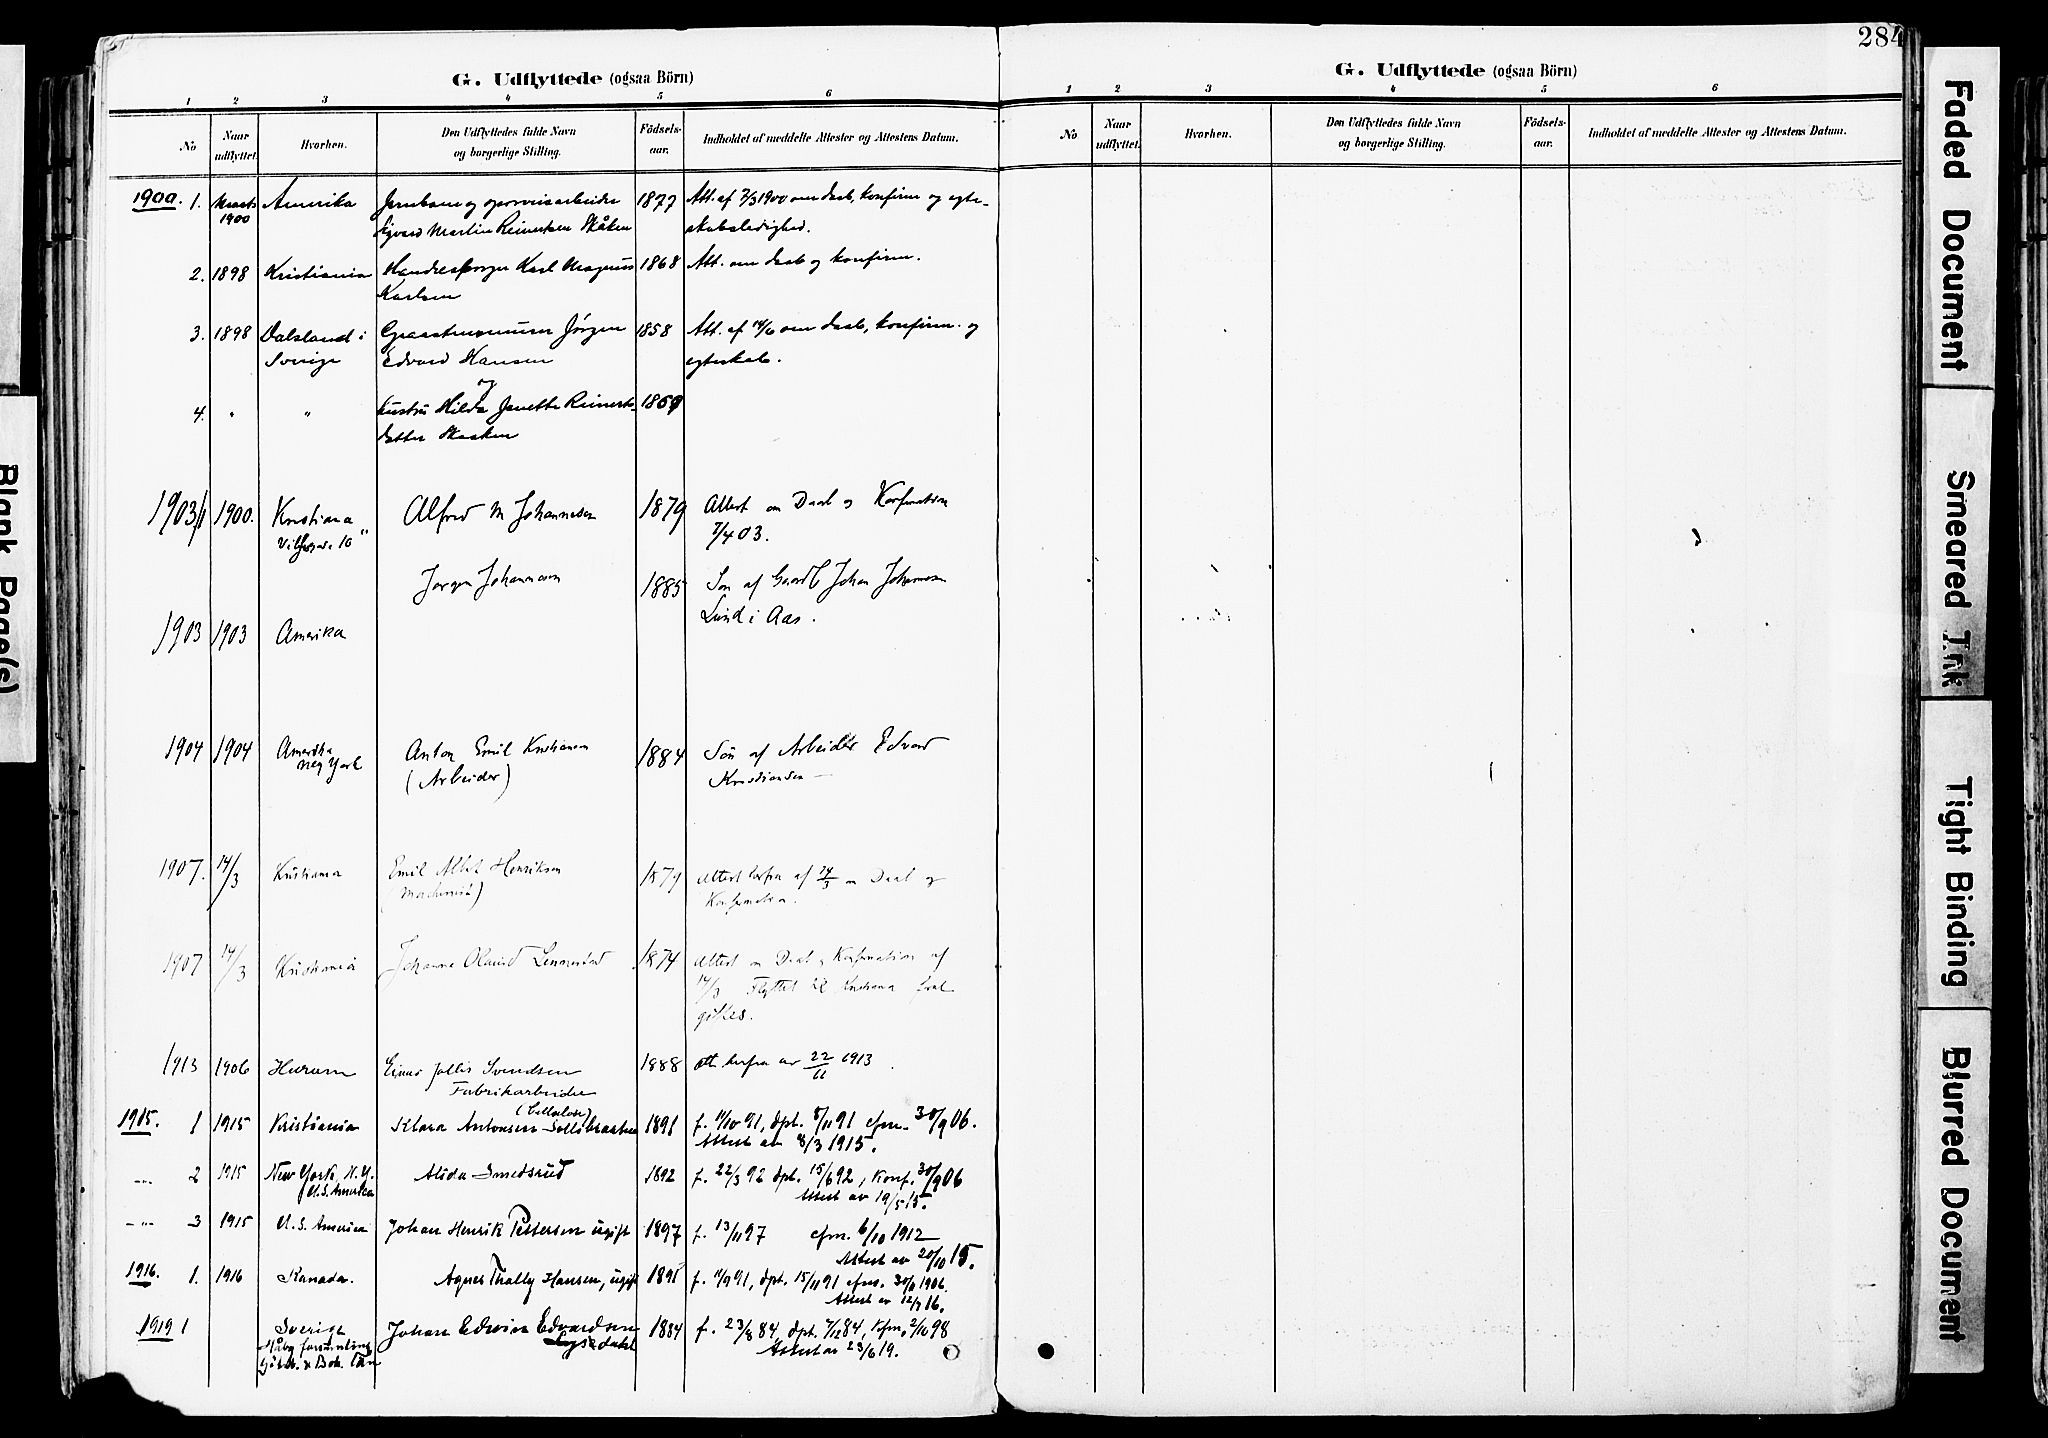 284
G. Udflyttede (ogsaa Börn)
1 2 3 4 5 6
No
Naar udflyttet.
Hvorhen.
Den Udflyttedes fulde Navn og borgerlige Stilling.
Födsels-aar.
Indholdet af meddelte Attester og Attestens Datum.
1900. 1. Marts 1900 Amerika Jernbane og sporveisarbeider 1877 Att. af 7/3 1900 om daab, konfirm og egte-
Sigvard Martin Reinertsen Skåken skabsledighed.
2. 1898 Kristiania Karl Magnus 1868 Att. om daab og konfirm.
Karlsen
3. 1898 Dalsland i Jörgen 1858 Att. af 14/6 om daab, konfirm. og
Sverige Edvard Hansen egteskab.
og
4. " " hustru Hilda Janette Reinerts- 1859
datter Skaaken
1903/1 1900. Kristiania Alfred M Johannesen 1879 Attest om Daab og Konfirmation
10 7/4 03.
Jørgen Johannesen 1885 Søn af Gaardb Johan Johannesen
1903 1903 Amerika Lund i Aas.
1904 1904 Amerika Anton Emil Kristiansen 1884 Søn af Arbeider Edvard
New York (Arbeider) Kristiansen —
1907. 14/3 Kristiania Emil Albert Henriksen 1879 Attest herfra af 14/3 om Daab og
(Maskinist) Konfirmation.
1907 14/3 Kristiania Johanne Olavsd Lennestad 1874 Attest om Daab og Konfirmation af
14/3 Flyttet til Kristiania
giftes.
1913 1906 Hurum Einar Svendsen 1888 att. herfra av 22/11 1913.
Fabrikarbeider
(Cellulose)
1915. 1 1915 Kristiania Klara Antonsen Sollibraaten 1891 f. 11/10 91, dpt. 8/11 91 cfm. 30/9 06.
Attest av 8/3 1915.
-"- 2 1915 New York, N.Y. Alida Smedsrud 1892 f. 22/3 92 dpt. 15/6 92, Konf. 30/9 06
U.S. Amerika Attest av 19/5 15.
-"- 3 1915 U.S. America Johan Henrik Pettersen ugift 1897 f. 13/11 97 cfm. 6/10 1912
Attest av 20/10 15.
1916. 1. 1916 Kanada. Agnes Thally Hansen, ugift 1891 f. 11/9 91, dpt. 15/11 91 cfm. 30/9 1906.
Attest av 12/9 16.
1919 1 Sverige Johan Edvin Edvardsen 1884 f. 23/8 84, dpt. 7/12 84, Kfm. 2/10 98
Lysedahl Attest av 23/6 19.
G. Udflyttede (ogsaa Börn)
1 2 3 4 5 6
No
Naar udflyttet.
Hvorhen.
Den Udflyttedes fulde Navn og borgerlige Stilling.
Födsels-aar.
Indholdet af meddelte Attester og Attestens Datum.
Blank Page(s)
Faded Document
Smeared Ink
Tight Binding
Blurred Document